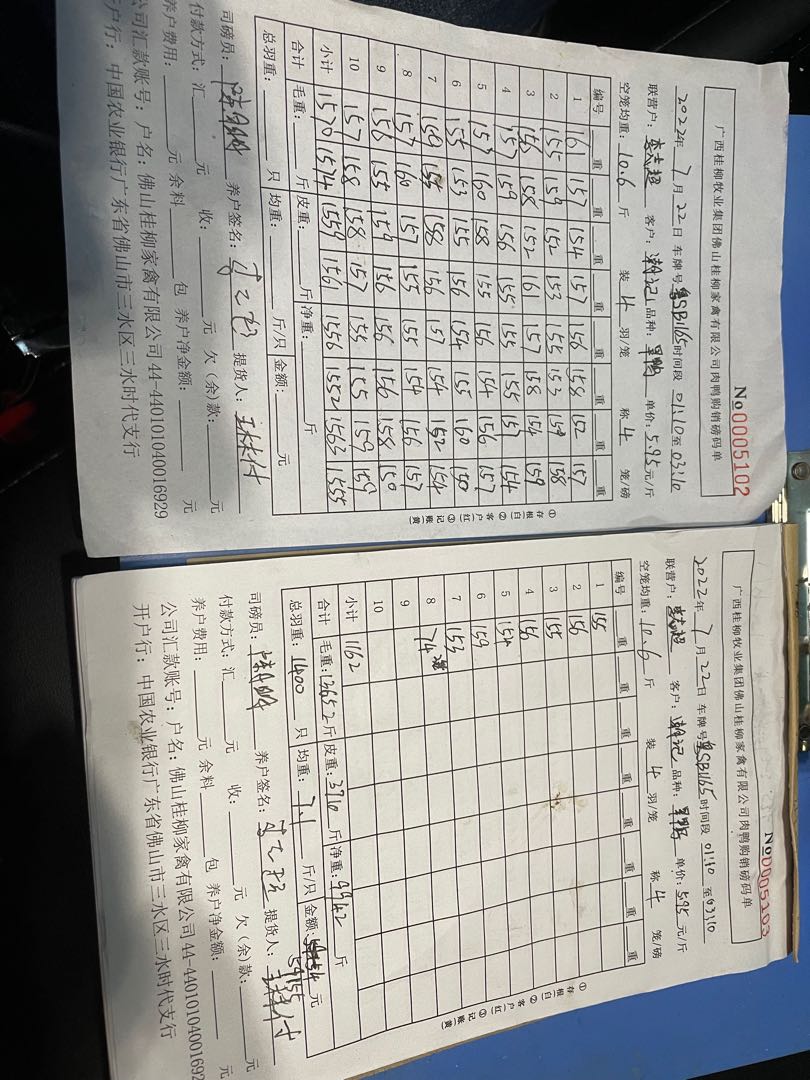 广西桂柳牧业集团佛山桂柳家禽有限公司肉鸭购销磅码单
No 0005102
2022年 7月 22日 车牌号 粤SB1165 时间段 01:10 至 03:10
联营户: 李志超 客户: 潮记 品种: 单价: 5.95 元/斤
空笼均重: 10.6 斤 装 4 羽/笼 称 4 笼/磅
编号 重 重 重 重 重 重 重 重
1 161 157 154 157 156 158 152 157
2 155 159 152 153 155 153 159 158
3 156 158 152 161 157 158 154 159
4 157 159 156 155 155 155 157 154
5 157 160 158 155 156 154 156 157
6 155 153 155 156 154 155 160 150
7 160 155 158 156 157 154 152 154
8 157 160 157 155 155 154 156 157
9 156 155 159 156 156 156 158 150
10 157 158 158 157 155 155 159 159
小计 1570 1574 1559 1561 1556 1552 1563 1555
合计 毛重: 斤 皮重: 斤 净重: 斤
总羽重: 只 均重: 斤/只 金额: 元
司磅员: 养户签名: 提货人:
付款方式: 汇 元 收: 元 欠(余)款: 元
养户费用: 元 余料 包 养户净金额: 元
公司汇款账号: 户名: 佛山桂柳家禽有限公司 44-440101040016929
开户行: 中国农业银行广东省佛山市三水区三水时代支行
①存根(白) ②客户(红) ③记账(黄)
广西桂柳牧业集团佛山桂柳家禽有限公司肉鸭购销磅码单
No 0005103
2022年 7月 22日 车牌号 粤SB1165 时间段 01:10 至 03:10
联营户: 李志超 客户: 潮记 品种: 单价: 5.95 元/斤
空笼均重: 10.6 斤 装 4 羽/笼 称 4 笼/磅
编号 重 重 重 重 重 重 重 重
1 155
2 156
3 155
4 156
5 154
6 159
7 153
8 74
9
10
小计 1162
合计 毛重: 13652 斤 皮重: 3710 斤 净重: 9942 斤
总羽重: 1400 只 均重: 7.1 斤/只 金额: 59155 元
司磅员: 养户签名: 提货人:
付款方式: 汇 元 收: 元 欠(余)款: 元
养户费用: 元 余料 包 养户净金额: 元
公司汇款账号: 户名: 佛山桂柳家禽有限公司 44-44010104001692
开户行: 中国农业银行广东省佛山市三水区三水时代支行
①存根(白) ②客户(红) ③记账(黄)